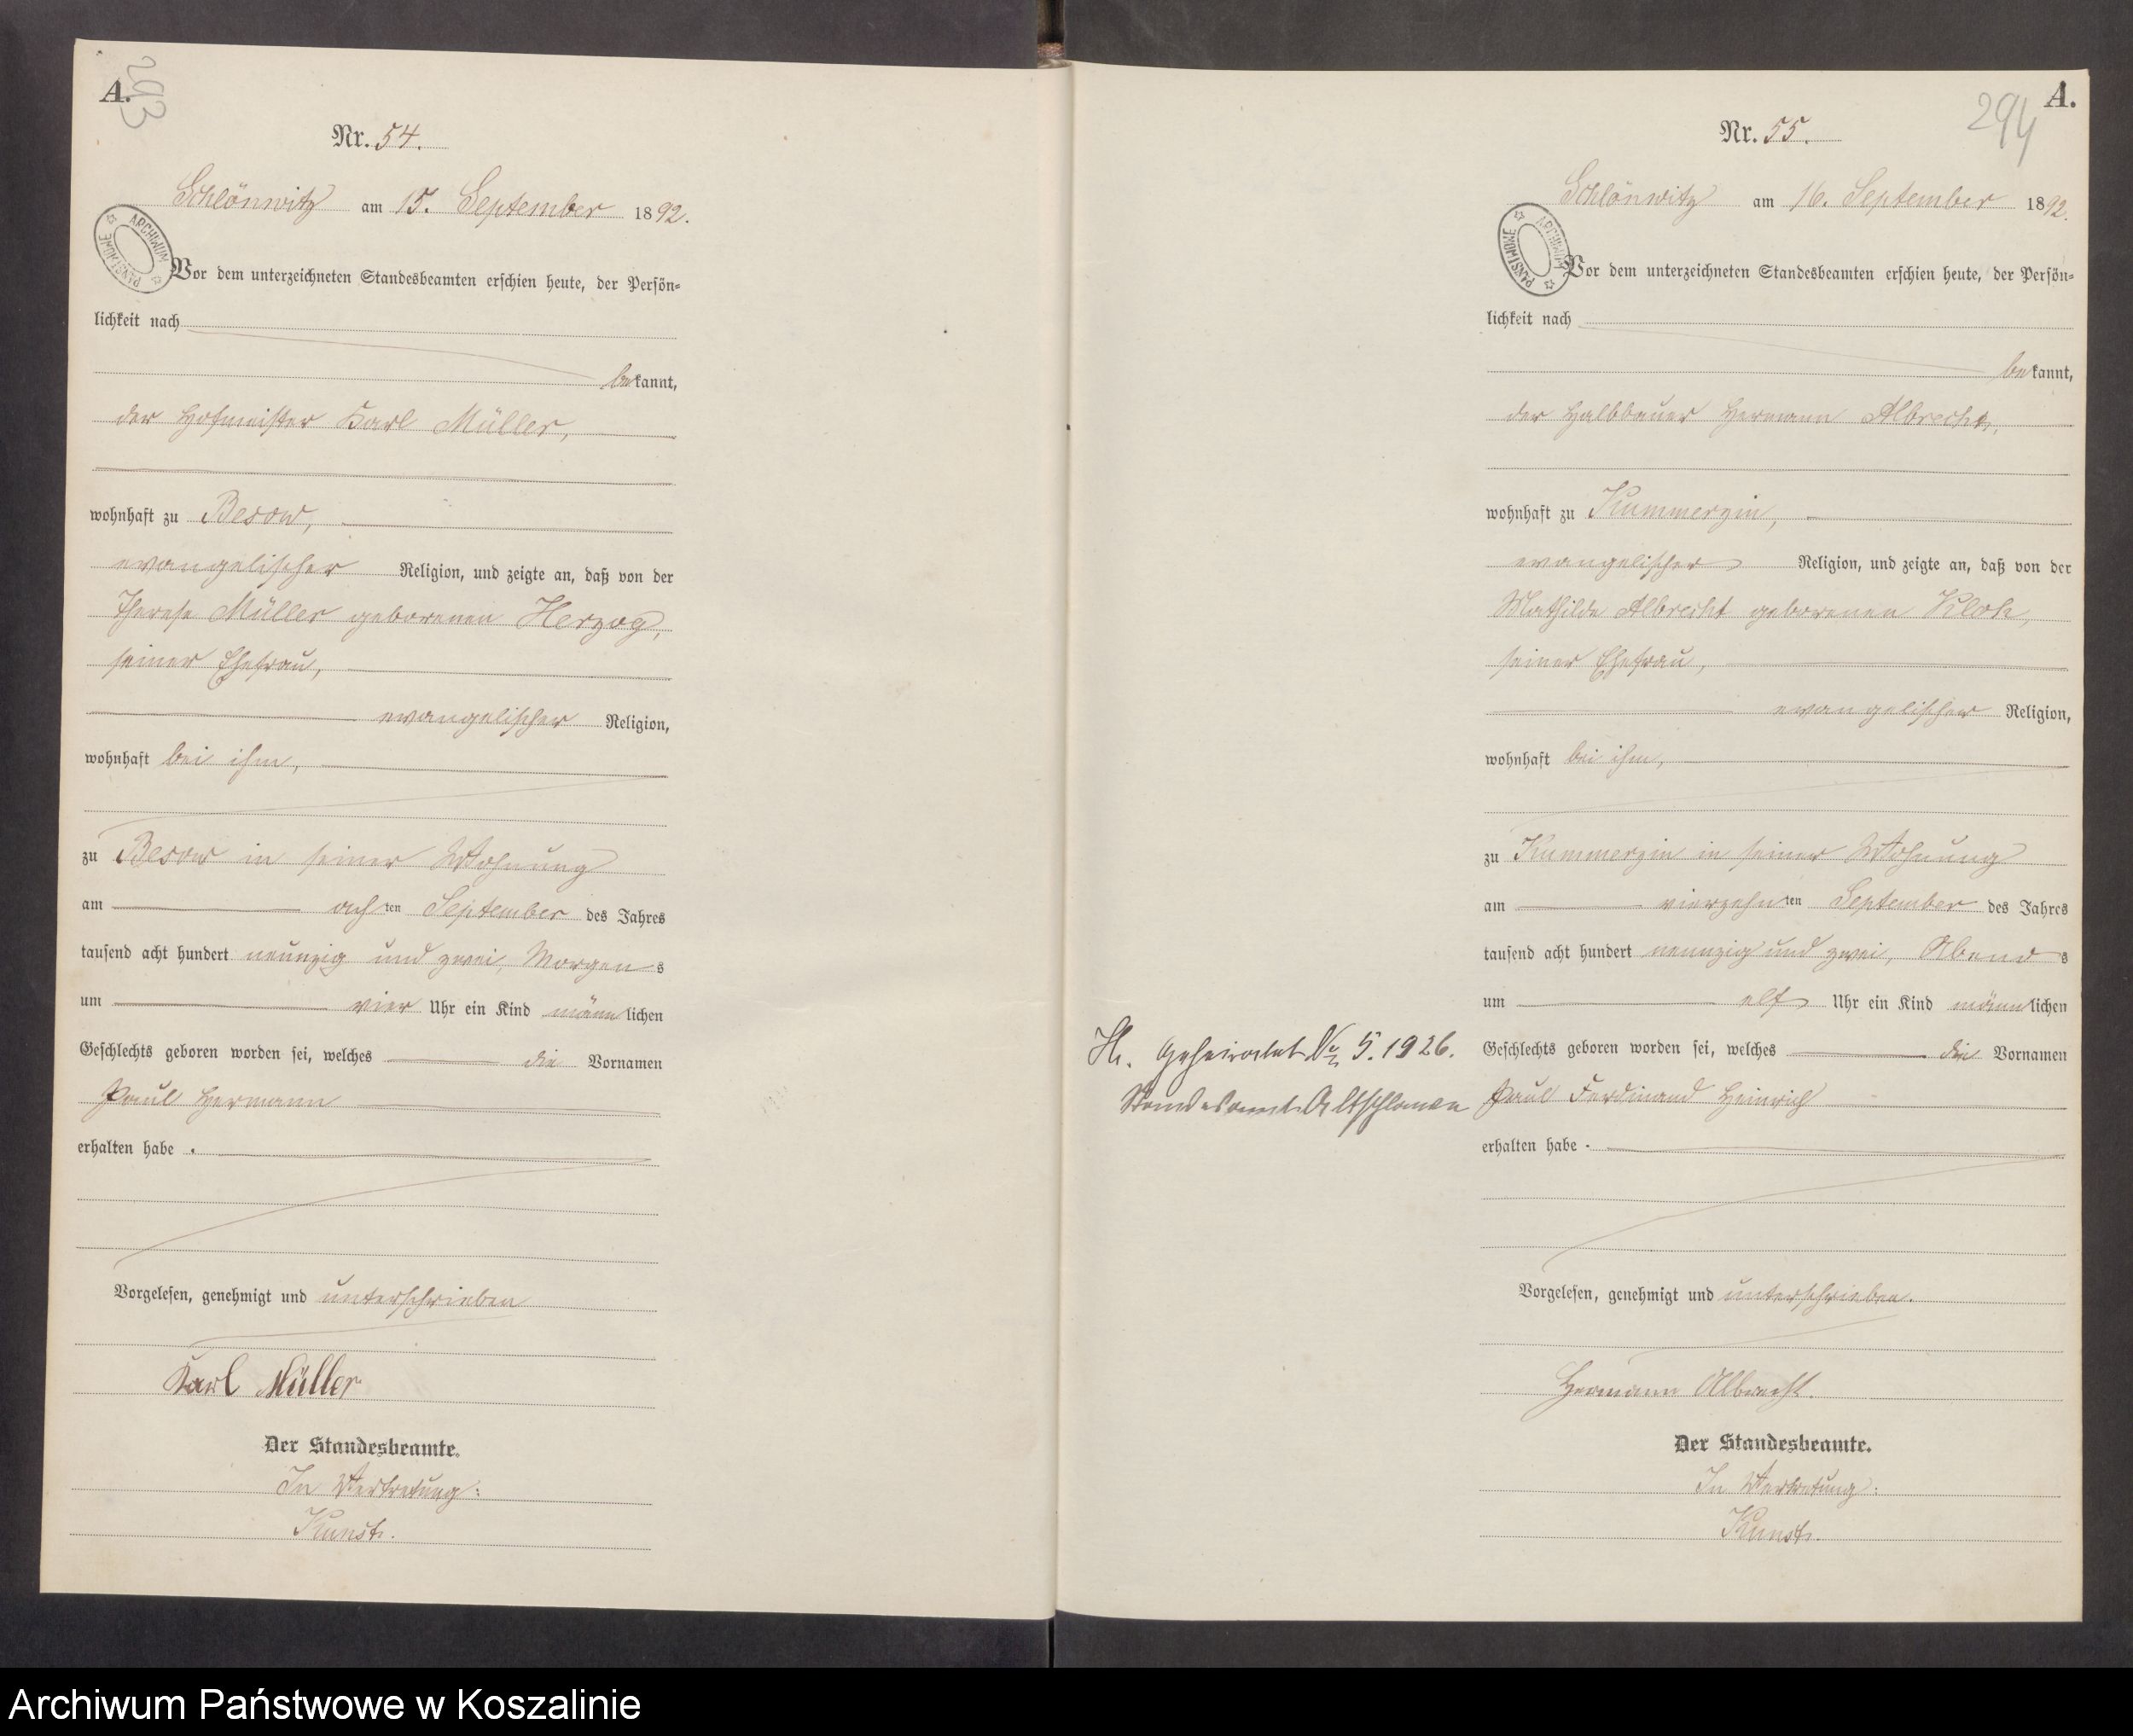 A.
293
Nr. 54.
Schlönwitz am 15. September 1892.
ARCHIWUM PAŃSTWOWE
Vor dem unterzeichneten Standesbeamten erschien heute, der Persön=
lichkeit nach
bekannt,
der Hofmeister Karl Müller,
wohnhaft zu Besow,
evangelischer Religion, und zeigte an, daß von der
Therese Müller geborenen Herzog,
seiner Ehefrau,
evangelischer Religion,
wohnhaft bei ihm,
zu Besow in seiner Wohnung
am achten September des Jahres
tausend acht hundert neunzig und zwei, Morgens
um vier Uhr ein Kind männlichen
Geschlechts geboren worden sei, welches die Vornamen
Paul Hermann
erhalten habe.
Vorgelesen, genehmigt und unterschrieben
Karl Müller
Der Standesbeamte.
In Vertretung:
Kunst.
A.
294
Nr. 55.
Schlönwitz am 16. September 1892.
ARCHIWUM PAŃSTWOWE
Vor dem unterzeichneten Standesbeamten erschien heute, der Persön=
lichkeit nach
bekannt,
der Halbbauer Hermann Albrecht,
wohnhaft zu Kummerzin,
evangelischer Religion, und zeigte an, daß von der
Mathilde Albrecht geborenen Kloh,
seiner Ehefrau,
evangelischer Religion,
wohnhaft bei ihm,
zu Kummerzin in seiner Wohnung
am vierzehnten September des Jahres
tausend acht hundert neunzig und zwei, Abends
um elf Uhr ein Kind männlichen
Geschlechts geboren worden sei, welches die Vornamen
Paul Ferdinand Heinrich
erhalten habe.
Vorgelesen, genehmigt und unterschrieben.
Hermann Albrecht.
Der Standesbeamte.
In Vertretung:
Kunst.
geheiratet 5. 1926.
Standesamt Altschlawe
Archiwum Państwowe w Koszalinie